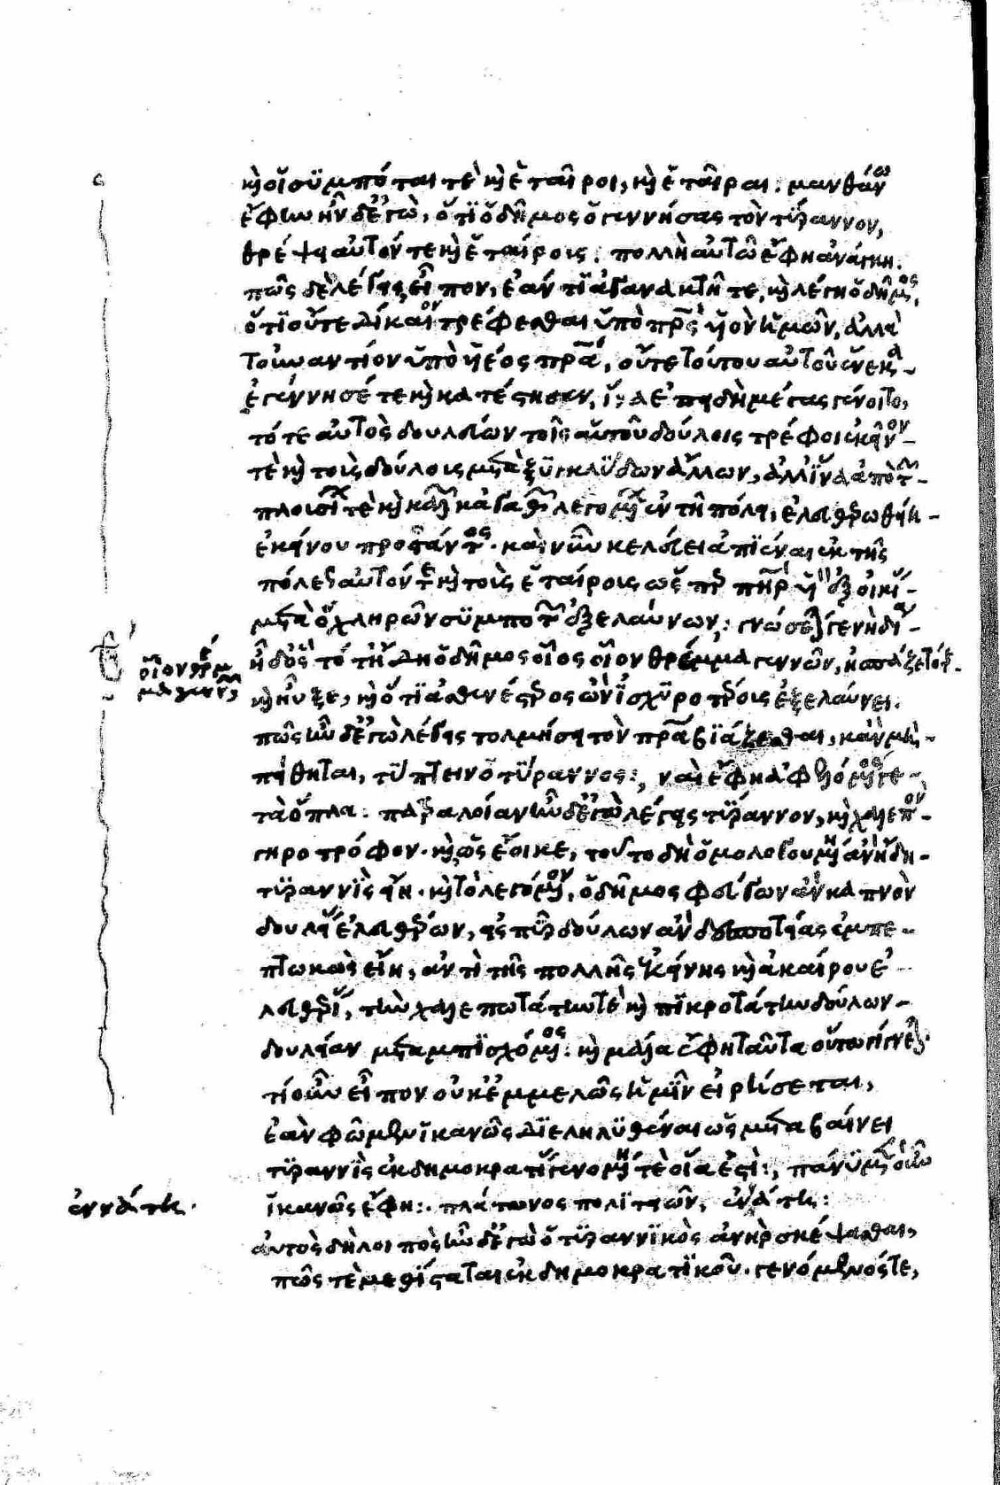 καὶ οἱ συμπόται τε καὶ ἑταῖροι, καὶ ἑταῖραι: μανθάνω
ἔφην ἦν δ' ἐγὼ, ὅτι ὁ δῆμος ὁ γεννήσας τὸν τύραννον,
θρέψει αὐτόν τε καὶ ἑταίρους: πολλὴ αὐτῶ ἔφη ἀνάγκη.
πῶς δὲ λέγεις εἶπον, ἐάν τι ἀγανακτῆ τε, καὶ λέγη ὁ δῆμος,
ὅτι οὔτε δίκαιον τρέφεσθαι ὑπὸ πατρὸς υἱὸν ἡβῶν, ἀλλὰ
τοὐναντίον ὑπὸ υἱέος πατέρα, οὔτε τούτου αὐτοῦ ἕνεκα
ἐγέννησέ τε καὶ κατέστησεν, ἵνα ἐπειδὴ μέγας γένοιτο,
τότε αὐτὸς δουλεύων τοῖς αὑτοῦ δούλοις τρέφοι ἐκεῖνόν
τε καὶ τοὺς δούλους μετὰ ξυγκλύδων ἄλλων, ἀλλ' ἵνα ἀπὸ τῶν
πλουσίων τε καὶ καλῶν κἀγαθῶν λεγομένων ἐν τῆ πόλει, ἐλευθερωθείη
ἐκείνου προστάντος. καὶ νῦν κελεύει ἀπιέναι ἐκ τῆς
πόλεως αὐτόν τε καὶ τοὺς ἑταίρους ὥσπερ πατὴρ υἱὸν ἐξ οἰκίας
μετὰ ὀχληρῶν συμποτῶν ἐξελαύνων: γνώσεταί γε νὴ δία
ἦ δ' ὃς τότ' ἤδη ὁ δῆμος οἷος οἷον θρέμμα γεννῶν, ἠσπάζετό τε
καὶ ηὖξε, καὶ ὅτι ἀσθενέστερος ὢν ἰσχυροτέρους ἐξελαύνει.
πῶς ἦν δ' ἐγὼ λέγεις τολμήσει τὸν πατέρα βιάζεσθαι, κἂν μὴ
πείθηται, τύπτειν ὁ τύραννος:, ναὶ ἔφη ἀφελόμενός γε
τὰ ὅπλα: πατραλοίαν ἦν δ' ἐγὼ λέγεις τύραννον, καὶ χαλεπὸν
γηροτρόφον. καὶ ὡς ἔοικε, τοῦτο δὴ ὁμολογουμένη ἂν ἤδη
τυραννὶς εἴη. καὶ τὸ λεγόμενον, ὁ δῆμος φεύγων ἂν καπνὸν
δουλείας ἐλευθέρων, εἰς πῦρ δούλων ἂν δεσποτείας ἐμπε
πτωκὼς εἴη, ἀντὶ τῆς πολλῆς ἐκείνης καὶ ἀκαίρου ἐ
λευθερίας, τὴν χαλεπωτάτην τε καὶ πικροτάτην δούλων
δουλείαν μεταμπισχόμενος: καὶ μάλα ἔφη ταῦτα οὕτω γίγνεται.
τί οὖν εἶπον οὐκ ἐμμελῶς ἡμῖν εἰρήσεται,
ἐὰν φῶμεν ἱκανῶς διεληλυθέναι ὡς μεταβαίνει
τυραννὶς ἐκ δημοκρατίας γενομένη τε οἵα ἐστί:, πάνυ μὲν οὖν
ἱκανῶς ἔφη:. πλάτωνος πολιτειῶν, ἐνάτη:
αὐτὸς δὴ λοιπὸς ἦν δ' ἐγὼ ὁ τυραννικὸς ἀνὴρ σκέψασθαι,
πῶς τὲ μεθίσταται ἐκ δημοκρατικοῦ. γενόμενός τε,
οἷον θρέμμα γεννῶν
ἐννάτη.